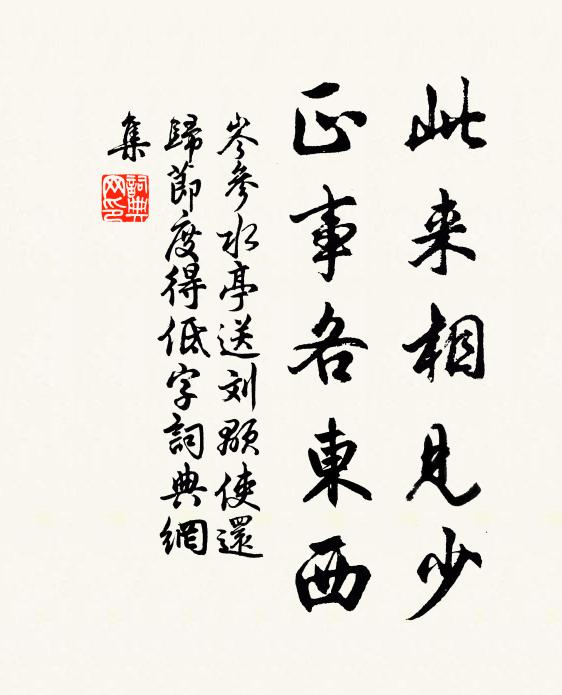 此来相見少
正事各東西
岑參水亭送刘颙使還
歸節度得低字詞典網
集
詞典网印